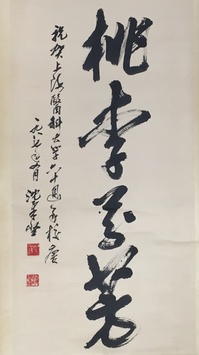 桃李芬芳
祝贺上海醫科大学六十週年校庆
一九八七年月 沈